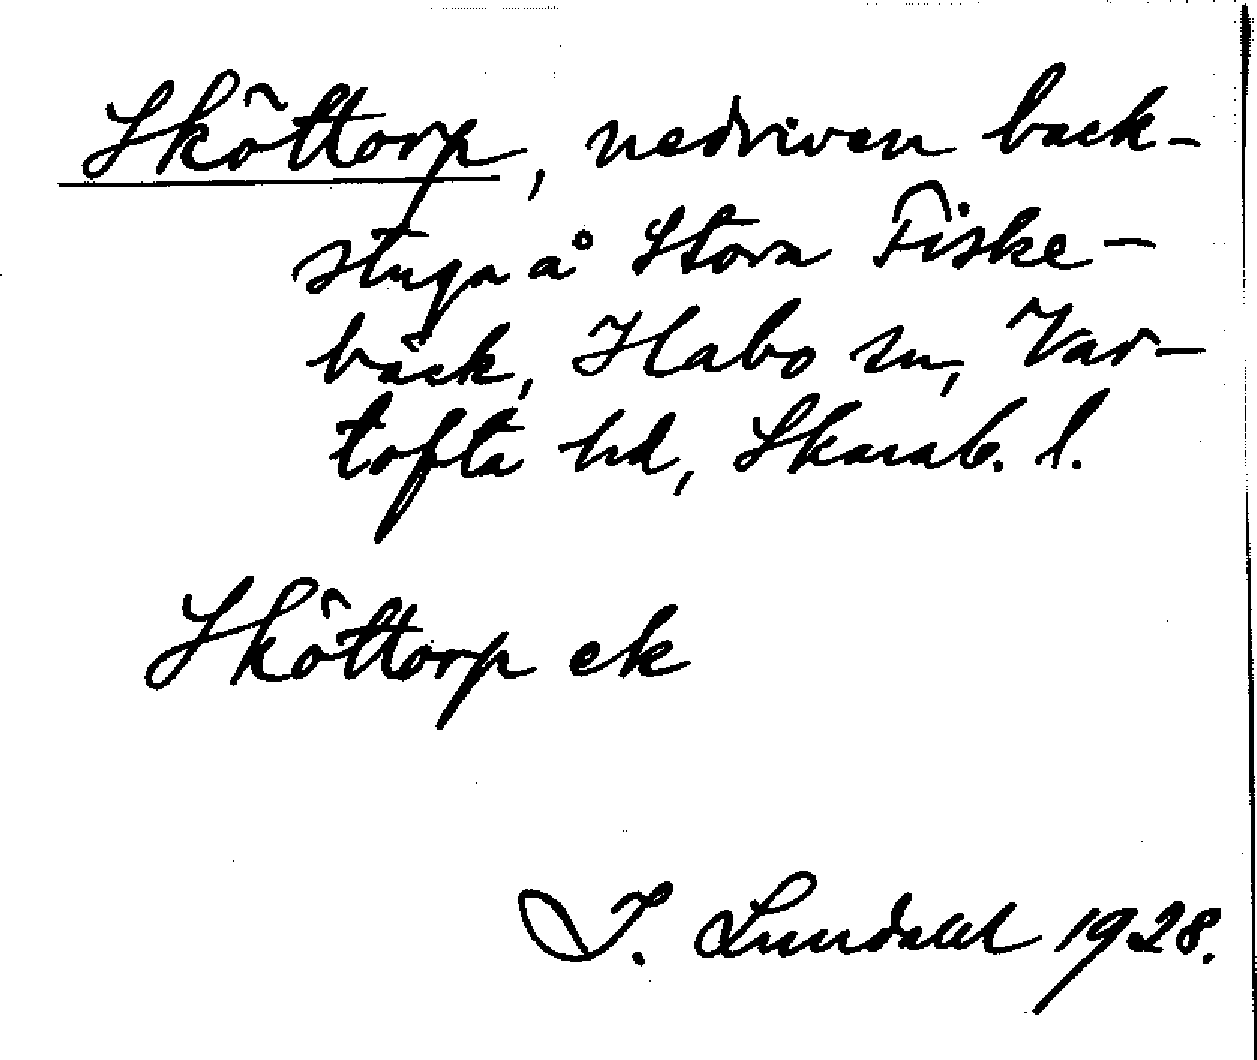 Sköttorp, nedriven back-
stuga å Stora Fiske-
bäck, Habo sn, Var-
tofta hd, Skarab. l.
Sköttorp ek
I. Lundahl 1928.